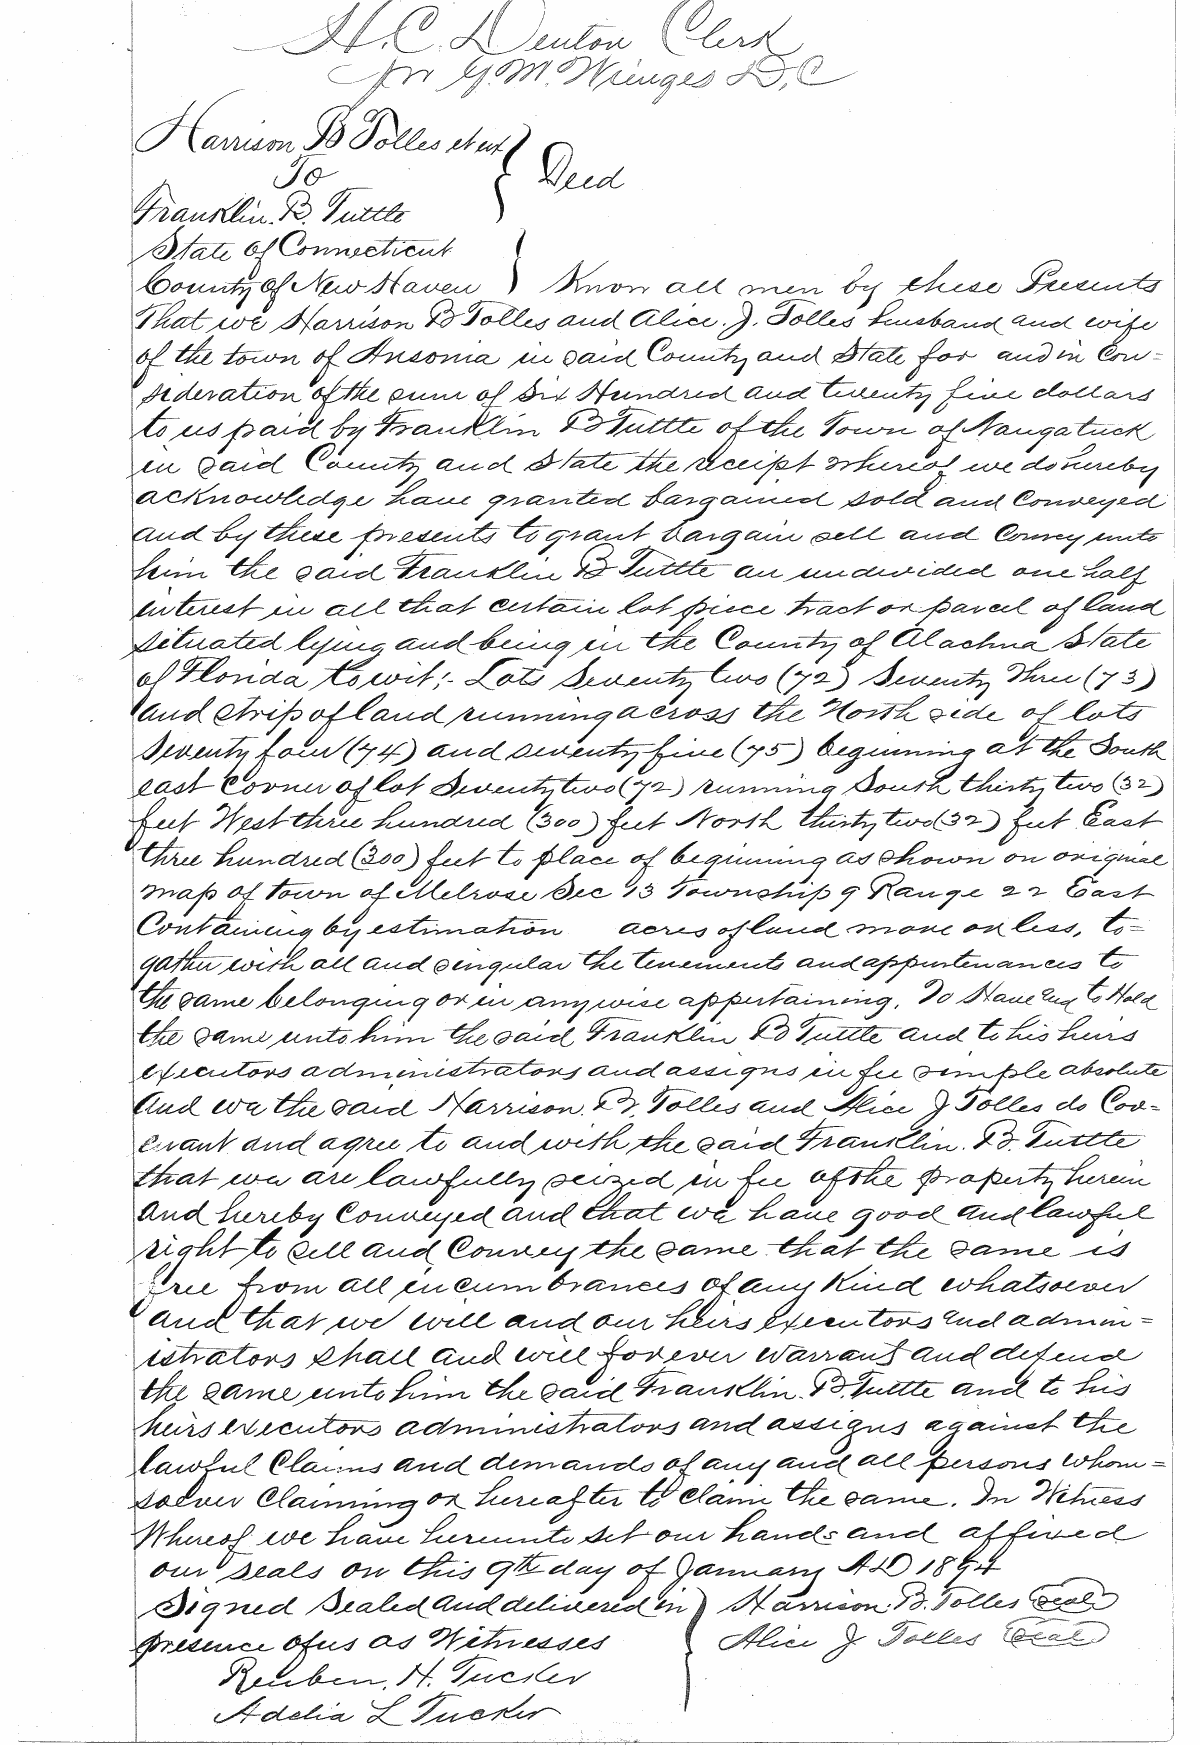 H. C. Denton Clerk
pr G. M. Wienges D, C
Harrison B Tolles et ux
To
Deed
Franklin. B. Tuttle
State of Connecticut
County of New Haven } Know all men by these Presents
That we Harrison B Tolles and Alice. J. Tolles husband and wife
of the town of Ansonia in said County and State for and in Con=
sideration of the sum of Six Hundred and twenty five dollars
to us paid by Franklin B Tuttle of the Town of Naugatuck
in said County and State the receipt whereof we do hereby
acknowledge have granted bargained sold and Conveyed
and by these presents to grant bargain sell and Convey unto
him the said Franklin B Tuttle an undivided one half
interest in all that certain lot piece tract or parcel of land
situated lying and being in the County of Alachua State
of Florida to wit;- Lots Seventy two (72) Seventy Three (73)
and strip of land running across the North side of lots
Seventy four (74) and seventy five (75) beginning at the South
east Corner of lot Seventy two (72) running South thirty two (32)
feet West three hundred (300) feet North thirty two (32) feet East
three hundred (300) feet to place of beginning as shown on original
map of town of Melrose Sec 13 Township 9 Range 22 East
Containing by estimation acres of land more or less, to=
gather with all and singular the tenements and appurtenances to
the same belonging or in anywise appertaining. To Have and to Hold
the same unto him the said Franklin B Tuttle and to his heirs
executors administrators and assigns in fee simple absolute
And we the said Harrison. B. Tolles and Alice J Tolles do Cov=
enant and agree to and with the said Franklin. B. Tuttle
that we are lawfully seized in fee of the property herein
and hereby Conveyed and that we have good and lawful
right to sell and Convey the same that the same is
free from all incumbrances of any Kind whatsoever
and that we will and our heirs executors and admin=
istrators shall and will forever warrant and defend
the same unto him the said Franklin. B. Tuttle and to his
heirs executors administrators and assigns against the
lawful Claims and demands of any and all persons whom=
soever Claiming or hereafter to claim the same. In Witness
Whereof we have hereunto set our hands and affixed
our seals on this 9th day of January A D 1894
Signed Sealed and delivered in } Harrison. B. Tolles Seal
presence of us as Witnesses Alice J Tolles Seal
Reuben. H. Tucker
Adelia L Tucker